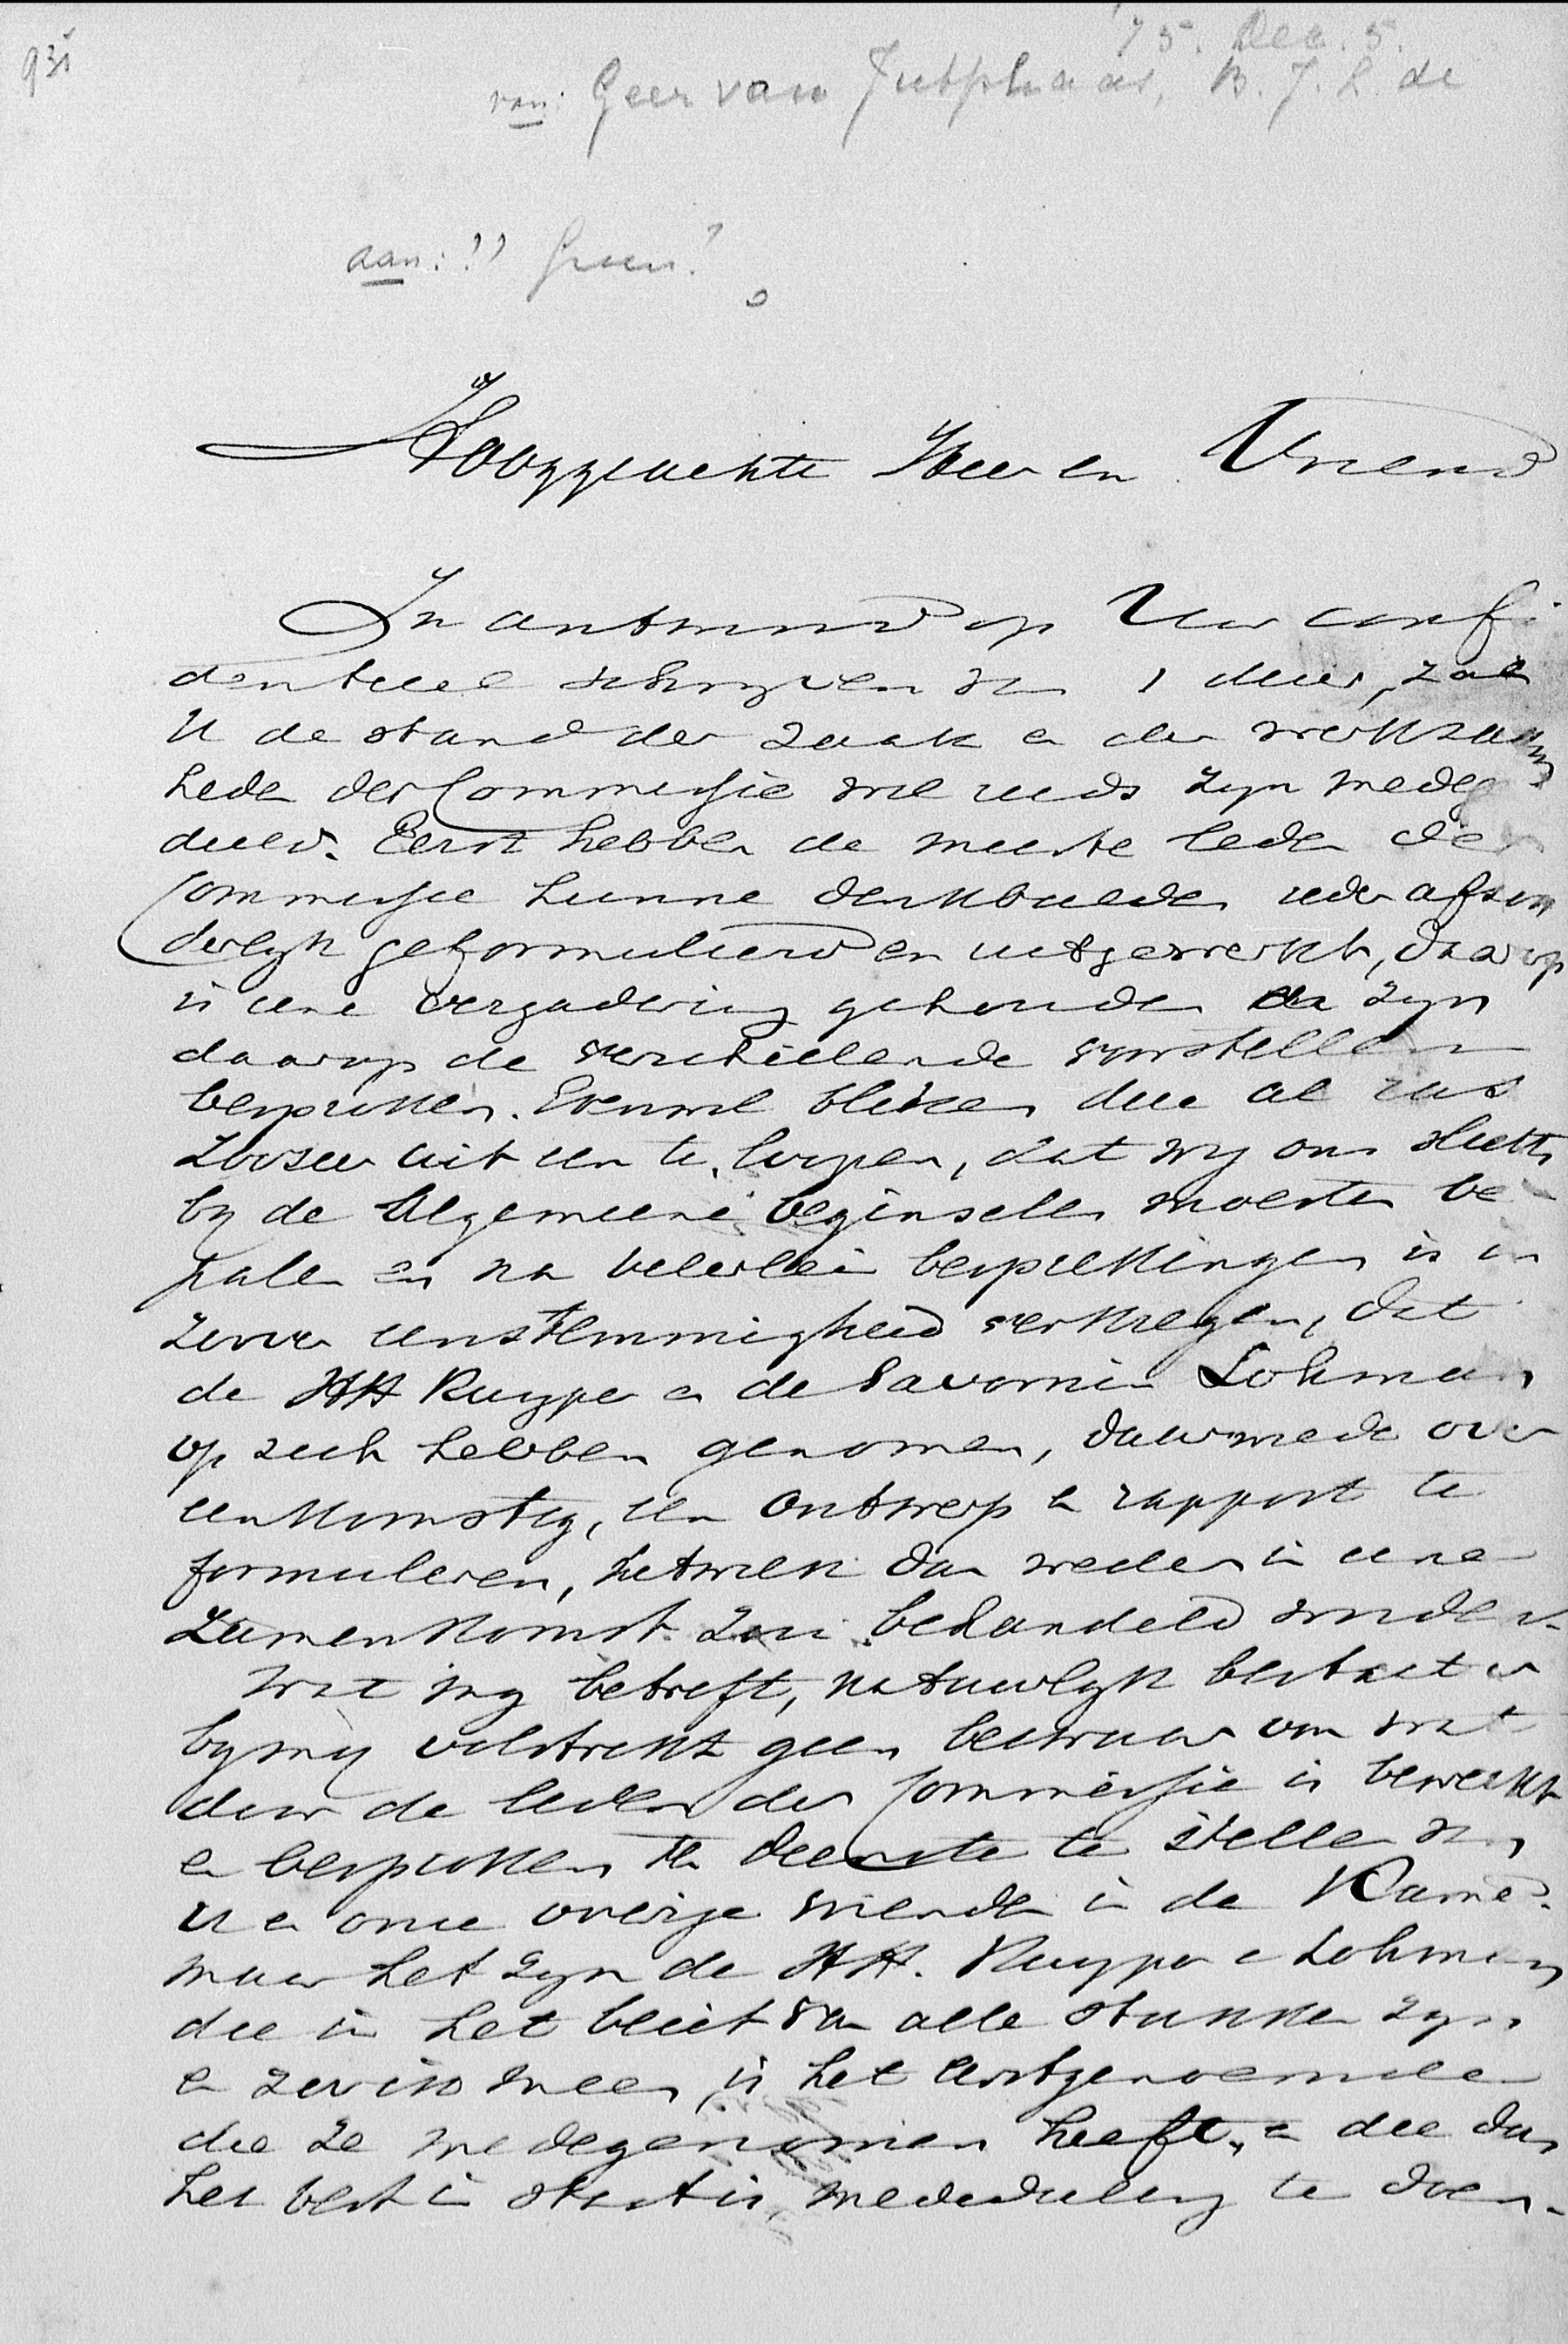 93s
'75. Dec. 5.
van: Geer van Jutphaas, B. J. L. de
aan: ?? Groen?
Hooggeachte Heer en Vriend
In antwoord op Uw confi
dentieel schryven van 1 dezer, zal
U de stand der zaak en der werkzaam
heden der Commissie wel reeds zyn medege
deeld. Eerst hebben de meeste leden der
Commissie hunne denkbeelden ieder afzon
derlyk geformuleerd en uitgewerkt, daarop
is eene vergadering gehouden en zyn
daarop de verschillende voorstellen
besproken. Evenwel bleken die al ras
zoozeer uit een te loopen, dat wy ons slechts
by de Algemeene beginselen moesten be-
palen en na velerlei besprekingen is in
zoover eenstemmigheid verkregen, dat
de HH Kuyper en de Savornin Lohman
op zich hebben genomen, daarmede over
eenkomstig, een Ontwerp en rapport te
formuleren, hetwelk dan weder in eene
Zamenkomst zou behandeld worden.
Wat my betreft, natuurlyk bestaat er
by my volstrekt geen bezwaar om wat
door de leden der Commissie is bewerkt
en besproken ten dienste te stellen van
U en onze overige vrienden in de Kamer.
maar het zyn de HH. Kuyper en Lohman
die in het bezit van alle stukken zyn
en zoo ik meen, is het eerstgenoemde
die ze medegenomen heeft, en die dus
het best in staat is, mededeeling te doen.